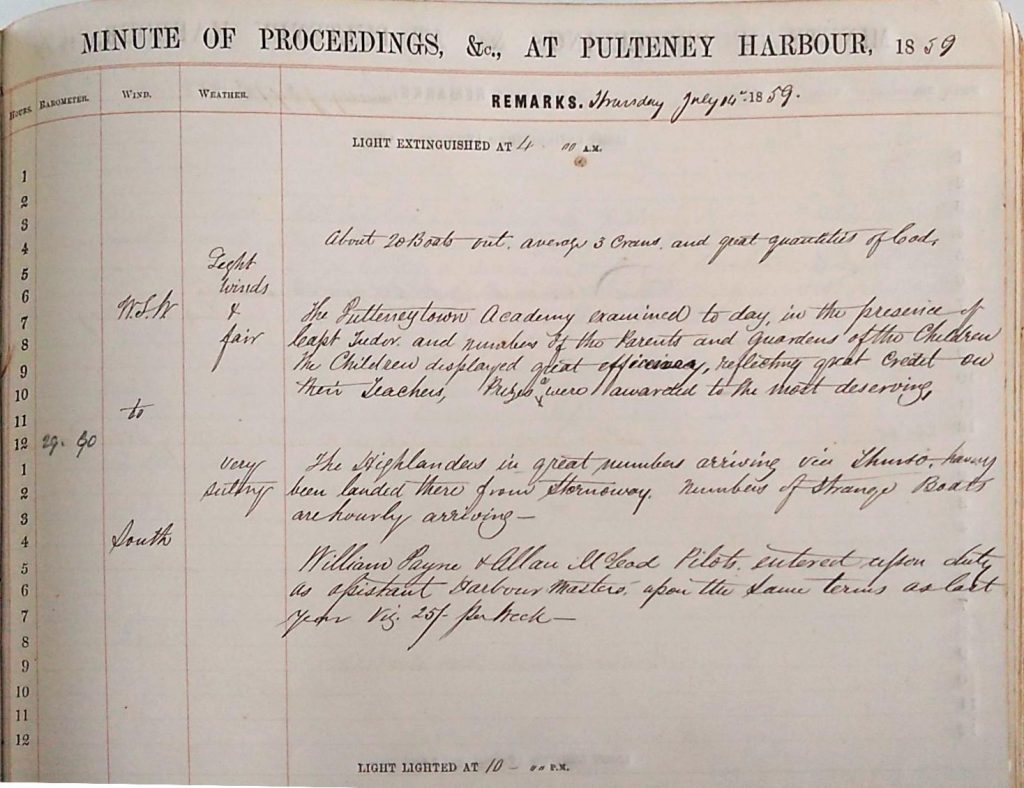 MINUTE OF PROCEEDINGS, &c., AT PULTENEY HARBOUR, 1859
HOURS. BAROMETER. WIND. WEATHER. REMARKS. Thursday July 14th 1859.
LIGHT EXTINGUISHED AT 4 00 A.M.
1
2
3
4
5
6
7
8
9
10
11
12
1
2
3
4
5
6
7
8
9
10
11
12
29. 90
W.S.W
to
South
Light
winds
&
fair
very
sultry
About 20 Boats out. average 3 Crans. and great quantities of Cod,
The Pulteneytown Academy examined to day, in the presence of
Capt Tudor. and numbers of the Parents and Guardens of the Children
The Children displayed great efficiency, reflecting great Credit on
their Teachers, Prizes were awarded to the most deserving,
The Highlanders in great numbers arriving via Thurso, having
been landed there from Stornoway. Numbers of Strange Boats
are hourly arriving —
William Payne & Allan McLeod Pilots, entered upon duty
as assistant Harbour Masters, upon the same terms as last
year Viz. 25/- per Week —
LIGHT LIGHTED AT 10 - 00 P.M.